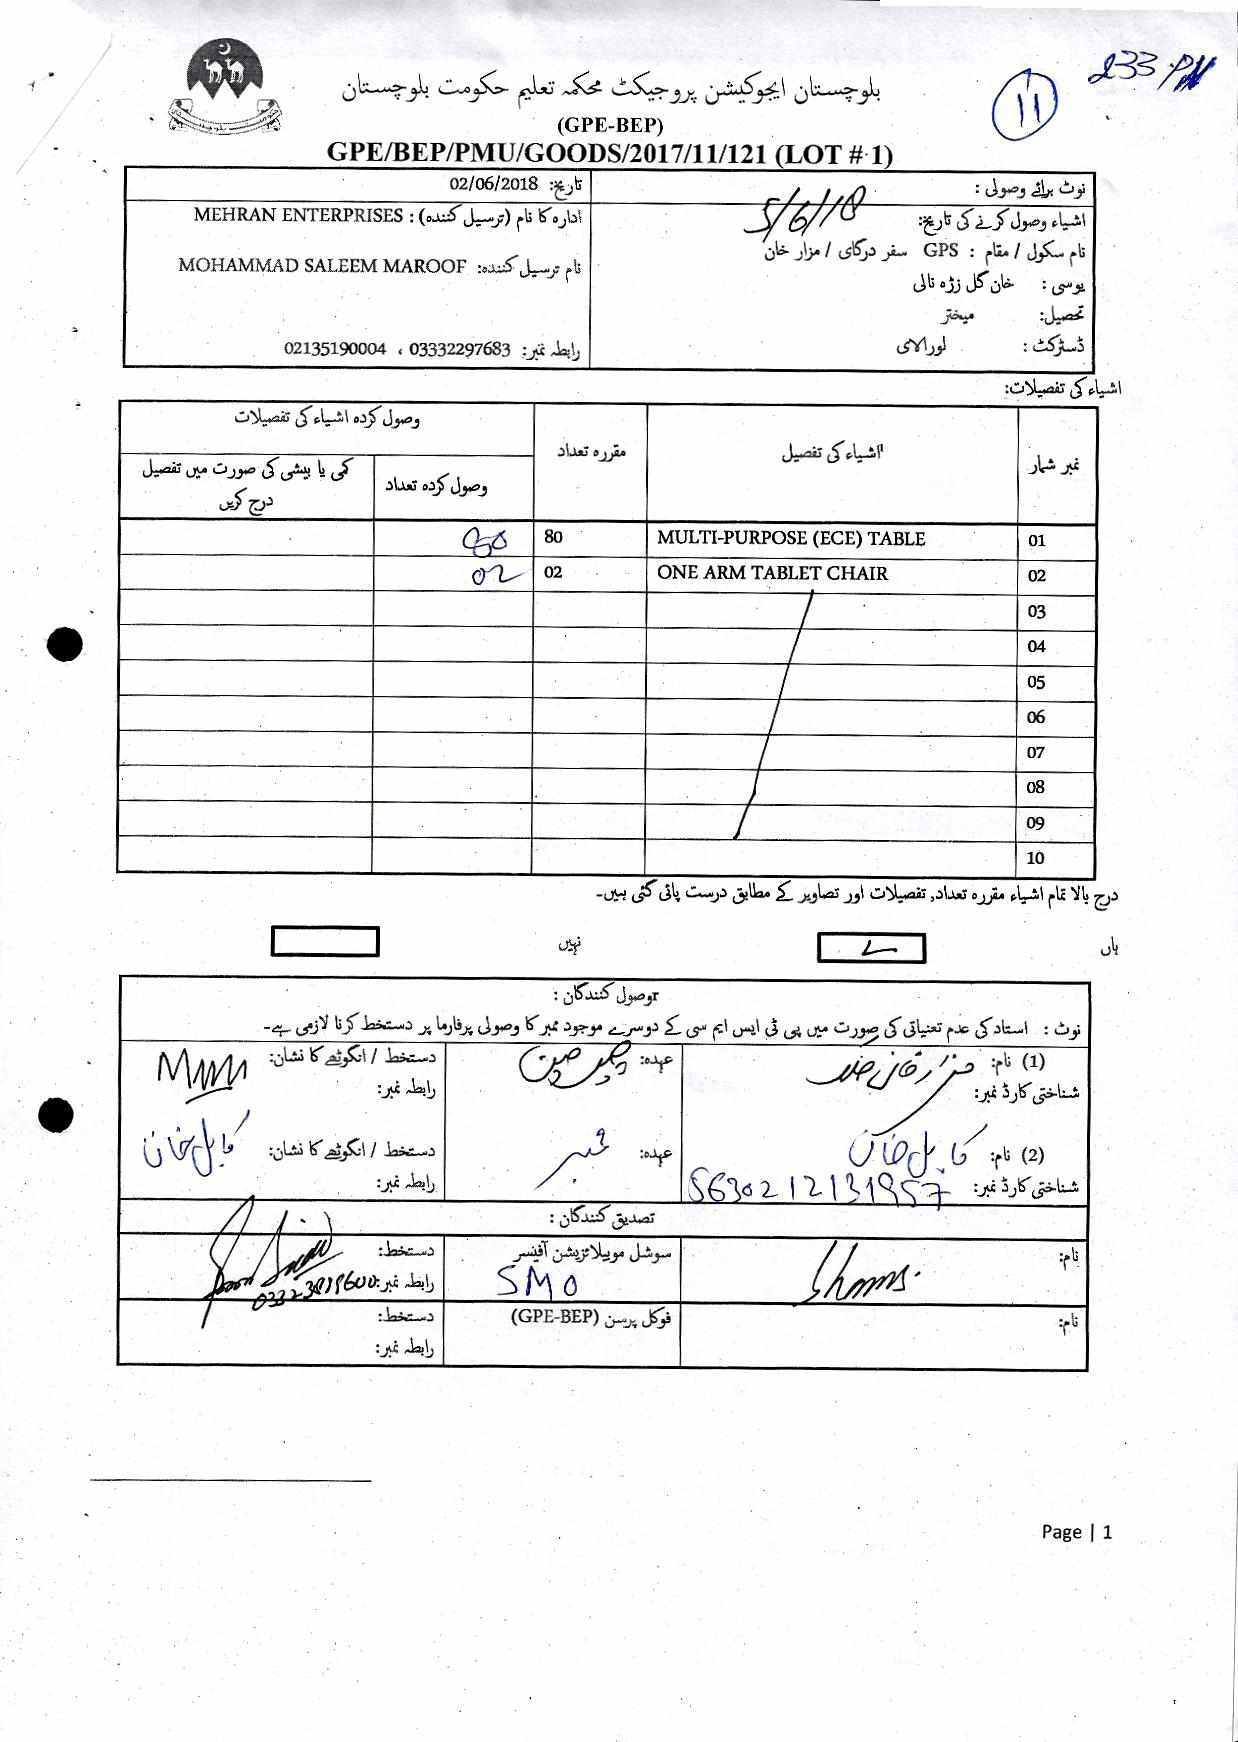 233 PM
11
بلوچستان ایجوکیشن پروجیکٹ محکمہ تعلیم حکومت بلوچستان
(GPE-BEP)
GPE/BEP/PMU/GOODS/2017/11/121 (LOT # 1)
نوٹ برائے وصولی :
اشیاء وصول کرنے کی تاریخ: 5/6/18
نام سکول / مقام : GPS سفر درگای / مزار خان
یوسی : خان گل زڑہ نالی
تحصیل: میختر
ڈسٹرکٹ : لورالای
تاریخ: 02/06/2018
ادارہ کا نام (ترسیل کنندہ) : MEHRAN ENTERPRISES
نام ترسیل کنندہ: MOHAMMAD SALEEM MAROOF
رابطہ نمبر: 03332297683 ، 02135190004
اشیاء کی تفصیلات:
نمبر شمار اشیاء کی تفصیل مقررہ تعداد وصول کردہ اشیاء کی تفصیلات
وصول کردہ تعداد کمی یا بیشی کی صورت میں تفصیل
درج کریں
01 MULTI-PURPOSE (ECE) TABLE 80
02 ONE ARM TABLET CHAIR 02 02
03
04
05
06
07
08
09
10
درج بالا تمام اشیاء مقررہ تعداد, تفصیلات اور تصاویر کے مطابق درست پائی گئی ہیں۔
ہاں نہیں
وصول کنندگان :
نوٹ : استاد کی عدم تعیناتی کی صورت میں پی ٹی ایس ایم سی کے دوسرے موجود ممبر کا وصولی پرفارما پر دستخط کرنا لازمی ہے۔
(1) نام: عہدہ: دستخط / انگوٹھے کا نشان:
شناختی کارڈ نمبر: رابطہ نمبر:
(2) نام: کابل خان عہدہ: ممبر دستخط / انگوٹھے کا نشان: کابل خان
شناختی کارڈ نمبر: 5630212131957 رابطہ نمبر:
تصدیق کنندگان :
نام: Shams سوشل موبیلائزیشن آفیسر دستخط:
SMO رابطہ نمبر:
نام: فوکل پرسن (GPE-BEP) دستخط:
رابطہ نمبر:
Page | 1